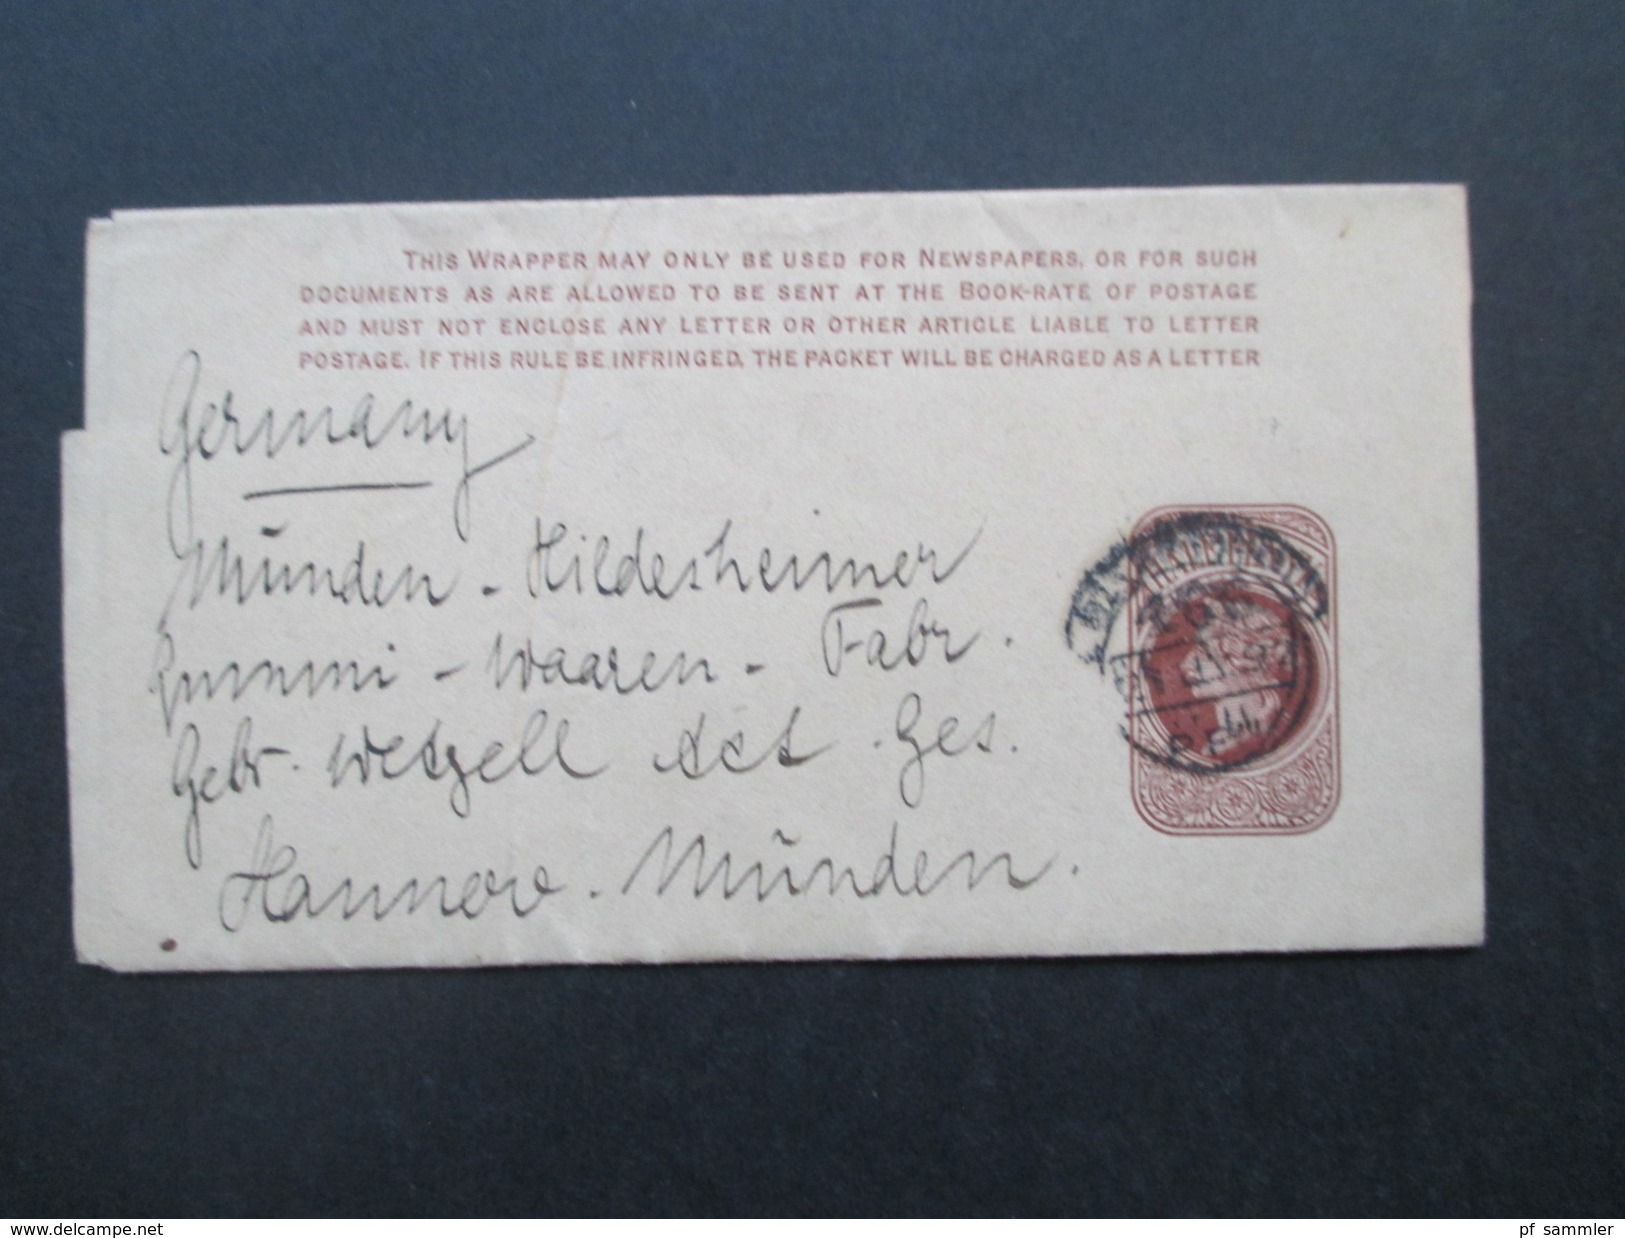 THIS WRAPPER MAY ONLY BE USED FOR NEWSPAPERS, OR FOR SUCH
DOCUMENTS AS ARE ALLOWED TO BE SENT AT THE BOOK-RATE OF POSTAGE
AND MUST NOT ENCLOSE ANY LETTER OR OTHER ARTICLE LIABLE TO LETTER
POSTAGE. IF THIS RULE BE INFRINGED, THE PACKET WILL BE CHARGED AS A LETTER
Germany
Münden - Hildesheimer
Gummi - Waaren - Fabr.
Gebr. Wetzell Act. Ges.
Hannov. Münden.
www.delcampe.net
pf_sammler